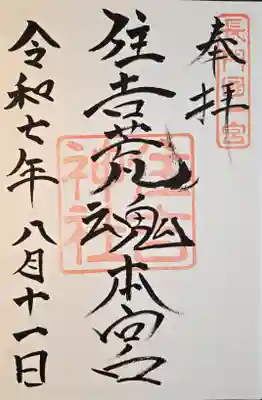 奉拝
長門國一宮
住吉荒魂本宮
住吉神社
令和七年八月十一日